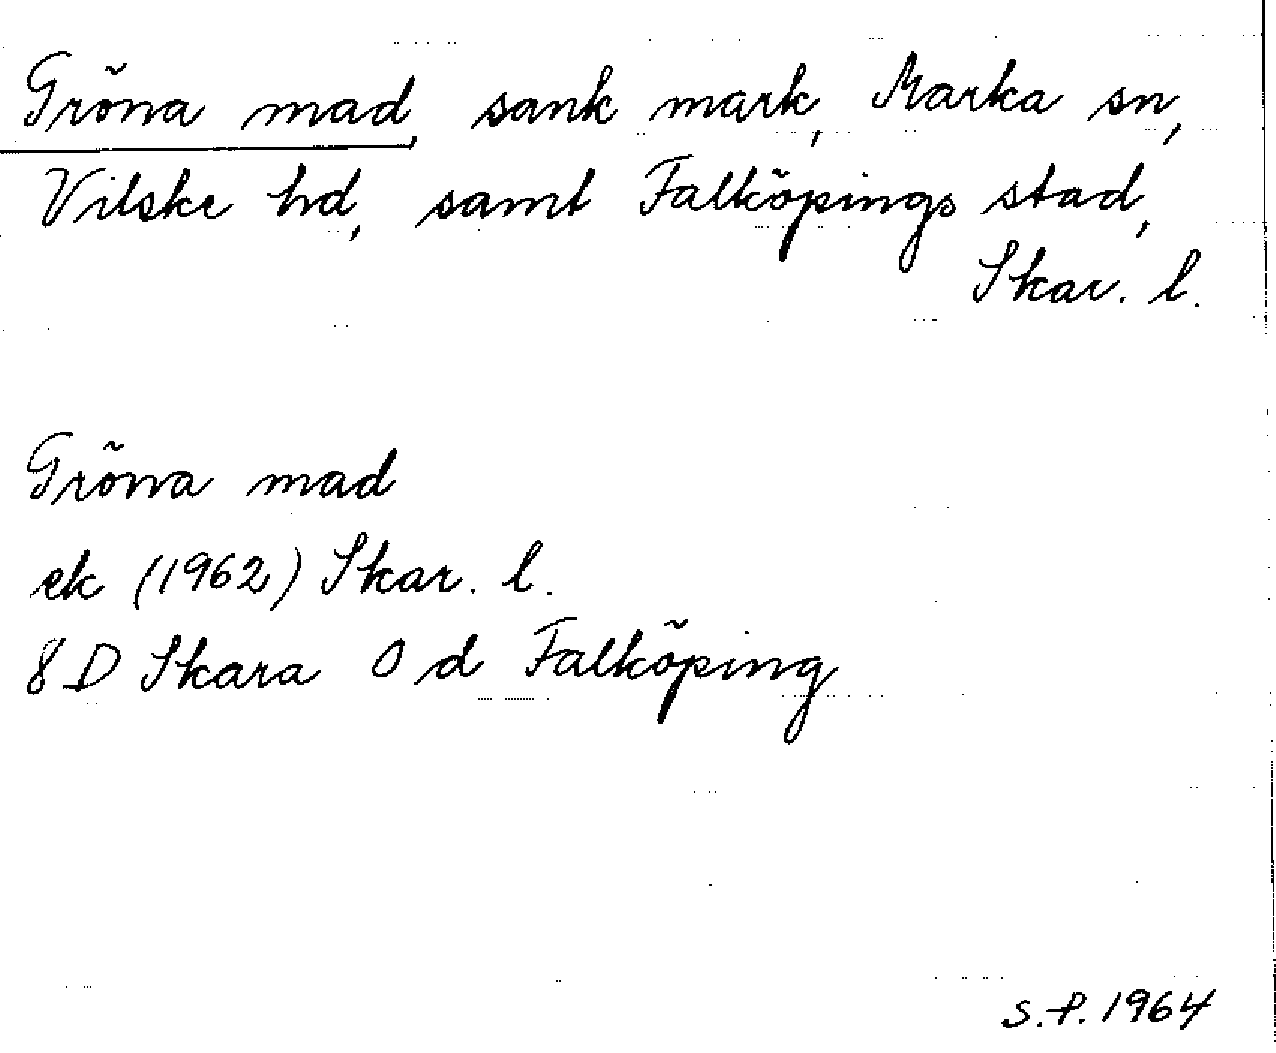 Gröna mad, sank mark, Marka sn,
Vilske hd, samt Falköpings stad,
Skar. l.
Gröna mad
ek (1962) Skar. l.
8 D Skara 0 d Falköping
S.P. 1964